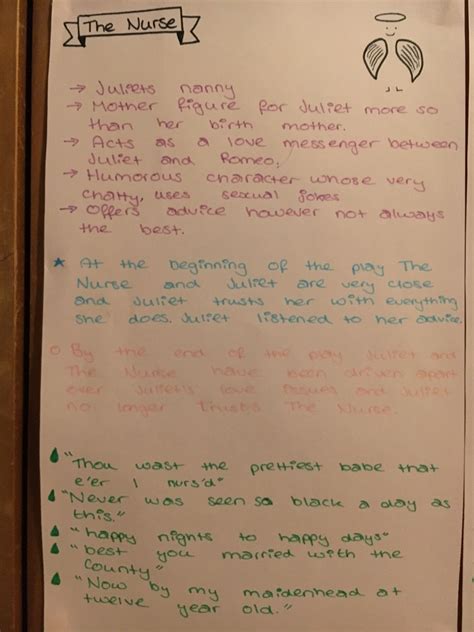 The Nurse
→ Juliets nanny
→ Mother figure for Juliet more so
than her birth mother.
→ Acts as a love messenger between
Juliet and Romeo.
→ Humorous character whose very
chatty, uses sexual jokes
→ Offers advice however not always
the best.
★ At the beginning of the play The
Nurse and Juliet are very close
and Juliet trusts her with everything
she does. Juliet listened to her advice
○ By the end of the play Juliet and
The Nurse have been driven apart
over Juliet's love issues and Juliet
no longer trusts The Nurse.
"Thou wast the prettiest babe that
e'er I nurs'd"
"Never was seen so black a day as
this."
"happy nights to happy days"
"best you married with the
County"
"Now by my maidenhead at
twelve year old."